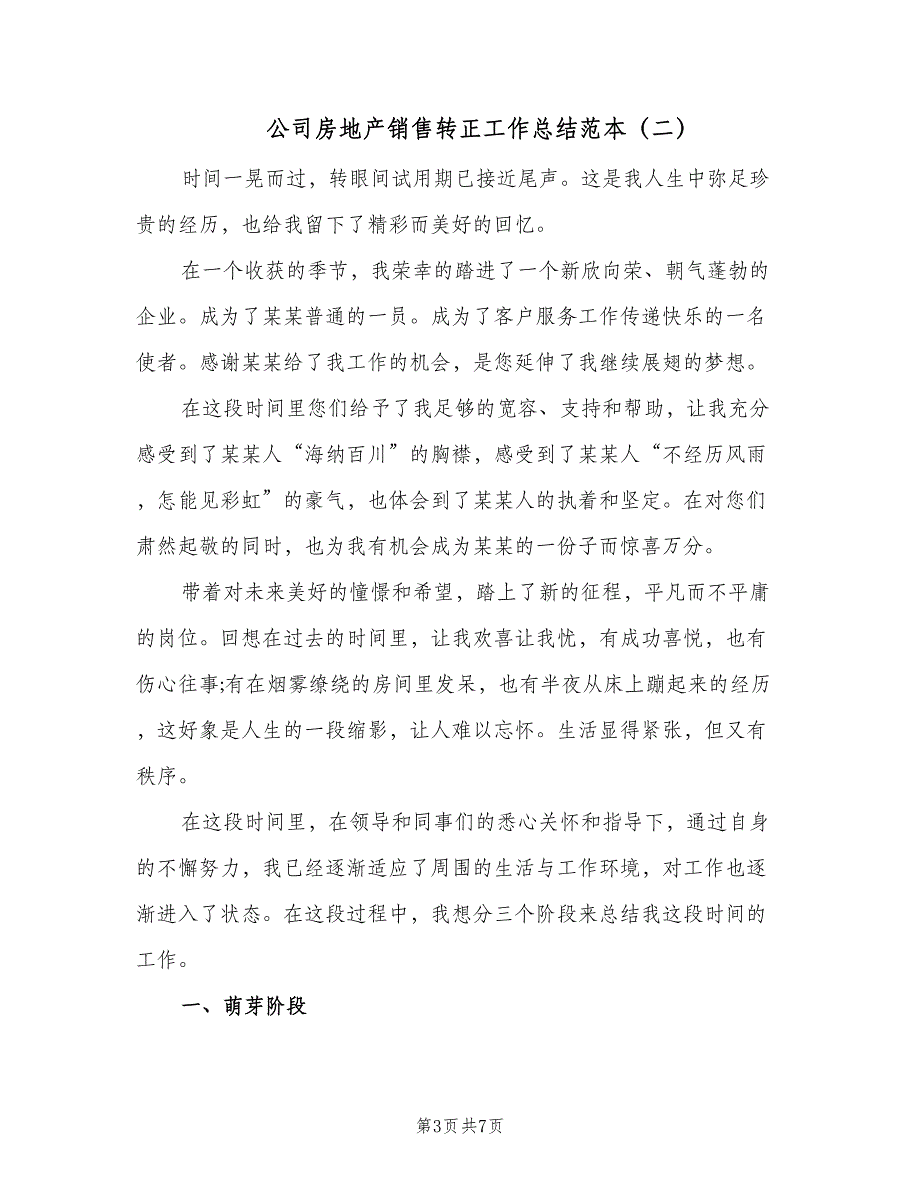 公司房地产销售转正工作总结范本（二）
时间一晃而过，转眼间试用期已接近尾声。这是我人生中弥足珍
贵的经历，也给我留下了精彩而美好的回忆。
在一个收获的季节，我荣幸的踏进了一个新欣向荣、朝气蓬勃的
企业。成为了某某普通的一员。成为了客户服务工作传递快乐的一名
使者。感谢某某给了我工作的机会，是您延伸了我继续展翅的梦想。
在这段时间里您们给予了我足够的宽容、支持和帮助，让我充分
感受到了某某人“海纳百川”的胸襟，感受到了某某人“不经历风雨
，怎能见彩虹”的豪气，也体会到了某某人的执着和坚定。在对您们
肃然起敬的同时，也为我有机会成为某某的一份子而惊喜万分。
带着对未来美好的憧憬和希望，踏上了新的征程，平凡而不平庸
的岗位。回想在过去的时间里，让我欢喜让我忧，有成功喜悦，也有
伤心往事;有在烟雾缭绕的房间里发呆，也有半夜从床上蹦起来的经历
，这好象是人生的一段缩影，让人难以忘怀。生活显得紧张，但又有
秩序。
在这段时间里，在领导和同事们的悉心关怀和指导下，通过自身
的不懈努力，我已经逐渐适应了周围的生活与工作环境，对工作也逐
渐进入了状态。在这段过程中，我想分三个阶段来总结我这段时间的
工作。
一、萌芽阶段
第3页共7页